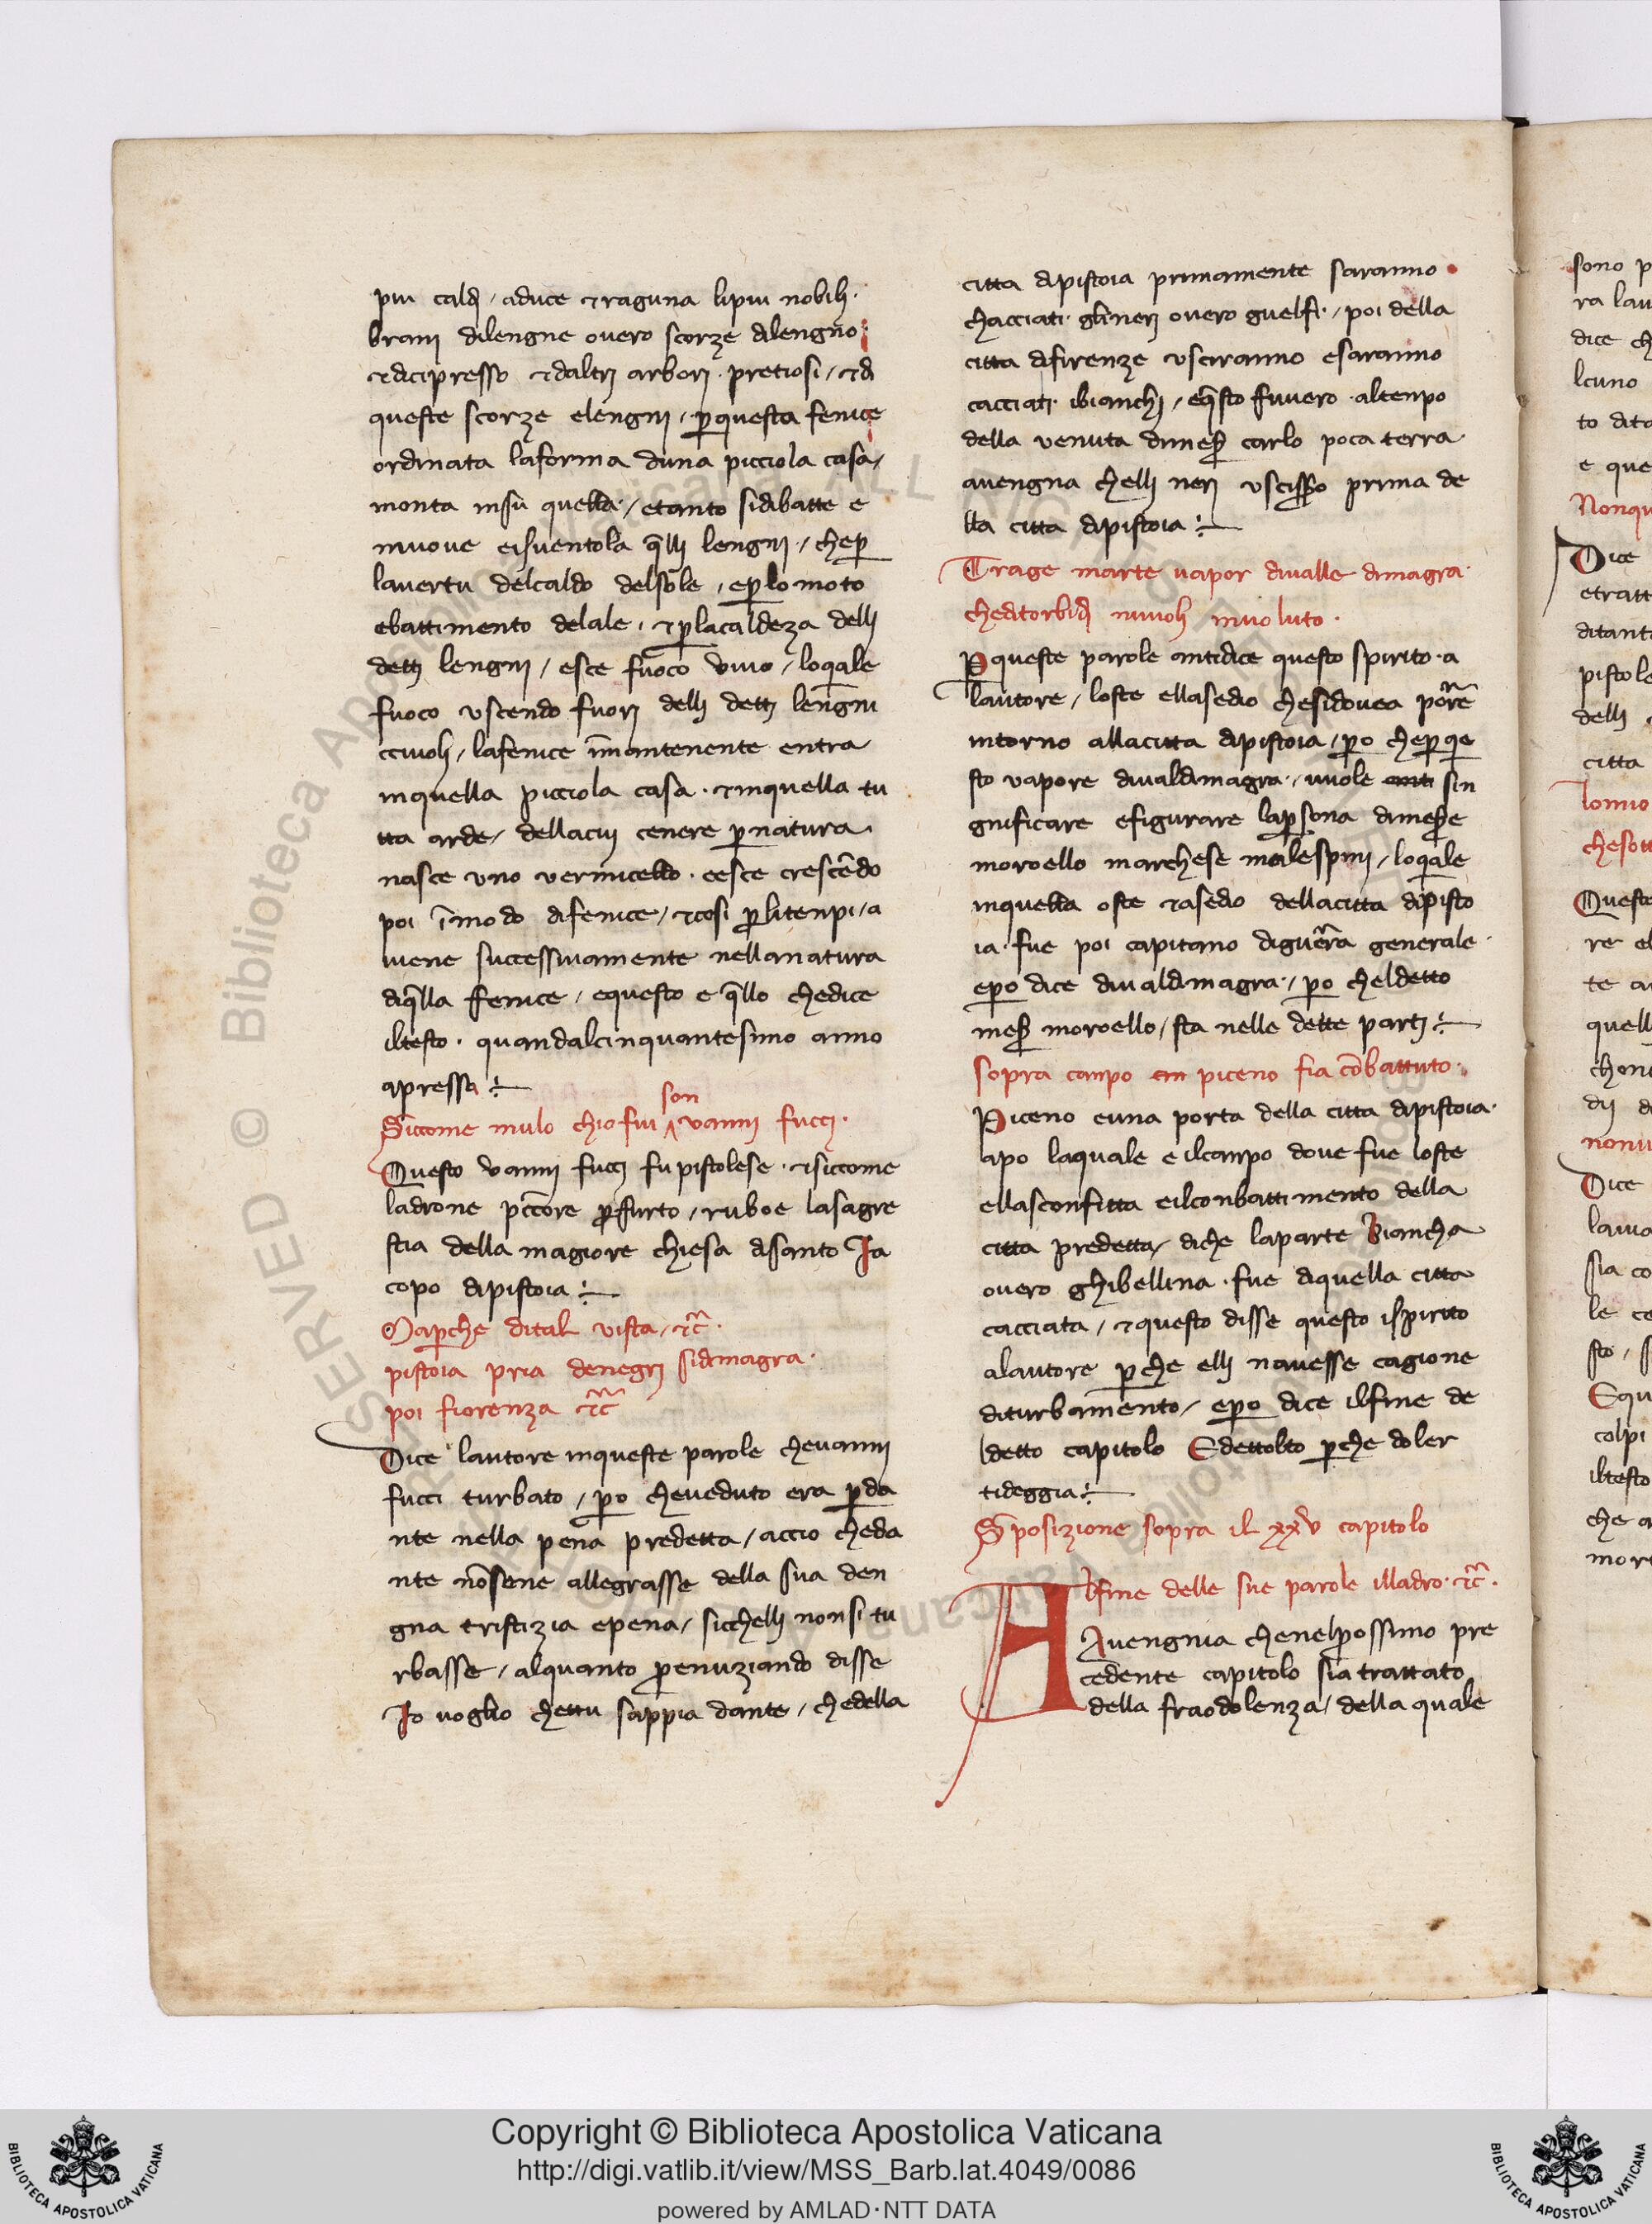 piu caldi / aduce & raguna lipiu nobili ·
brani dilengne ouero scorze dilengno
& dicipresso & daltri arbori · pretiosi / & di
queste scorze elengni / ꝑquesta fenice
ordinata laforma duna picciola casa /
monta insu quella · / etanto sidibatte e
muoue eisuentola q̄lli lengni / cheꝑ
lauertu delcaldo delsole / eꝑlo moto
ebattimento delale · & ꝑlacaldeza delli
detti lengni / esce fuoco viuo / loqale
fuoco vscendo fuori delli detti lengni
cciuoli / lafenice īmantenente entra
inquella picciola casa · & inquella tu
tta arde / dellacui cenere ꝑnatura
nasce vno vermicello · eesce crescēdo
poi ī modo difenice / & cosi ꝑlitenpi / a
uiene successiuamente nellanatura
diq̄lla fenice / equesto e q̄llo chedice
iltesto · quandalcinquantesimo anno
apressa
son
Siccome mulo chiofui vanni fucci ·
Questo vanni fucci fu pistolese · & siccome
ladrone pcc̄ore ꝑfurto / ruboe lasagre
stia della magiore chiesa disanto Ja
copo dipistoia
Oaꝑche dital vista / &c̄ ·
pistoia pria denegri sidimagra ·
poi fiorenza &c̄
Dice lautore inqueste parole cheuanni
fucci turbato / ꝑo cheueduto era ꝑda
nte nella pena predetta / accio cheda
nte nōsene allegrasse della sua den
gna tristizia epena / sicchelli nonsi tu
rbasse / alquanto ꝓnuziando disse
Io uoglio chettu sappia dante / chedella
citta dipistoia primamente saranno
chacciati · glineri ouero guelfi · / poi della
citta difirenze vsciranno esaranno
cacciati · ibianchi / eq̄sto fuuero · altenpo
della venuta dimeſ carlo poca terra
auengna chelli neri vscissero prima de
lla citta dipistoia
Trage marte uapor diualle dimagra ·
cheditorbidi nuuoli inuoluto ·
Ꝑqueste parole antidice questo spirito · a
lautore / loste ellasedio chesidouea porre
intorno allacitta dipistoia / ꝑo cheꝑqe
sto vapore diualdimagra · / uuole anti sin
gnificare efigurare laꝑsona dimeſe
moroello marchese malespini / loqale
inquella oste & asedio dellacitta dipisto
ia · fue poi capitano diguerra generale ·
eꝑo dice diualdimagra · / ꝑo cheldetto
meſ moroello / sta nelle dette parti
sopra canpo piceno fia cōbattuto ·
Piceno euna porta della citta dipistoia ·
apo laquale e ilcanpo doue fue loste
ellasconfitta eilconbattimento della
citta predetta / diche laparte Biancha
ouero ghibellina · fue diquella citta
cacciata / & questo disse questo ispirito
alautore ꝑche elli nauesse cagione
diturbamento / eꝑo dice ilfine de
ldetto capitolo Edettolto ꝑche doler
tideggia
Sposizione sopra il xxv capitolo
Alfine delle sue parole illadro · &c̄ ·
Auengnia chenelꝓssimo pre
cedente capitolo sia trattato
della fraodolenza / della quale
sono p
ra lau
dice ch
lcuno
to dito
e que
Nonqu
Dice
etratt
ditant
pistole
delli
citta
chesott
Questo
re el
te a
quell
chon
dij d
nonu
Dice
laui
sia co
le ce
sto / s
Equ
colpi
iltesto
che a
mort
Copyright © Biblioteca Apostolica Vaticana
http://digi.vatlib.it/view/MSS_Barb.lat.4049/0086
powered by AMLAD·NTT DATA
BIBLIOTECA APOSTOLICA VATICANA
BIBLIOTECA APOSTOLICA VATICANA